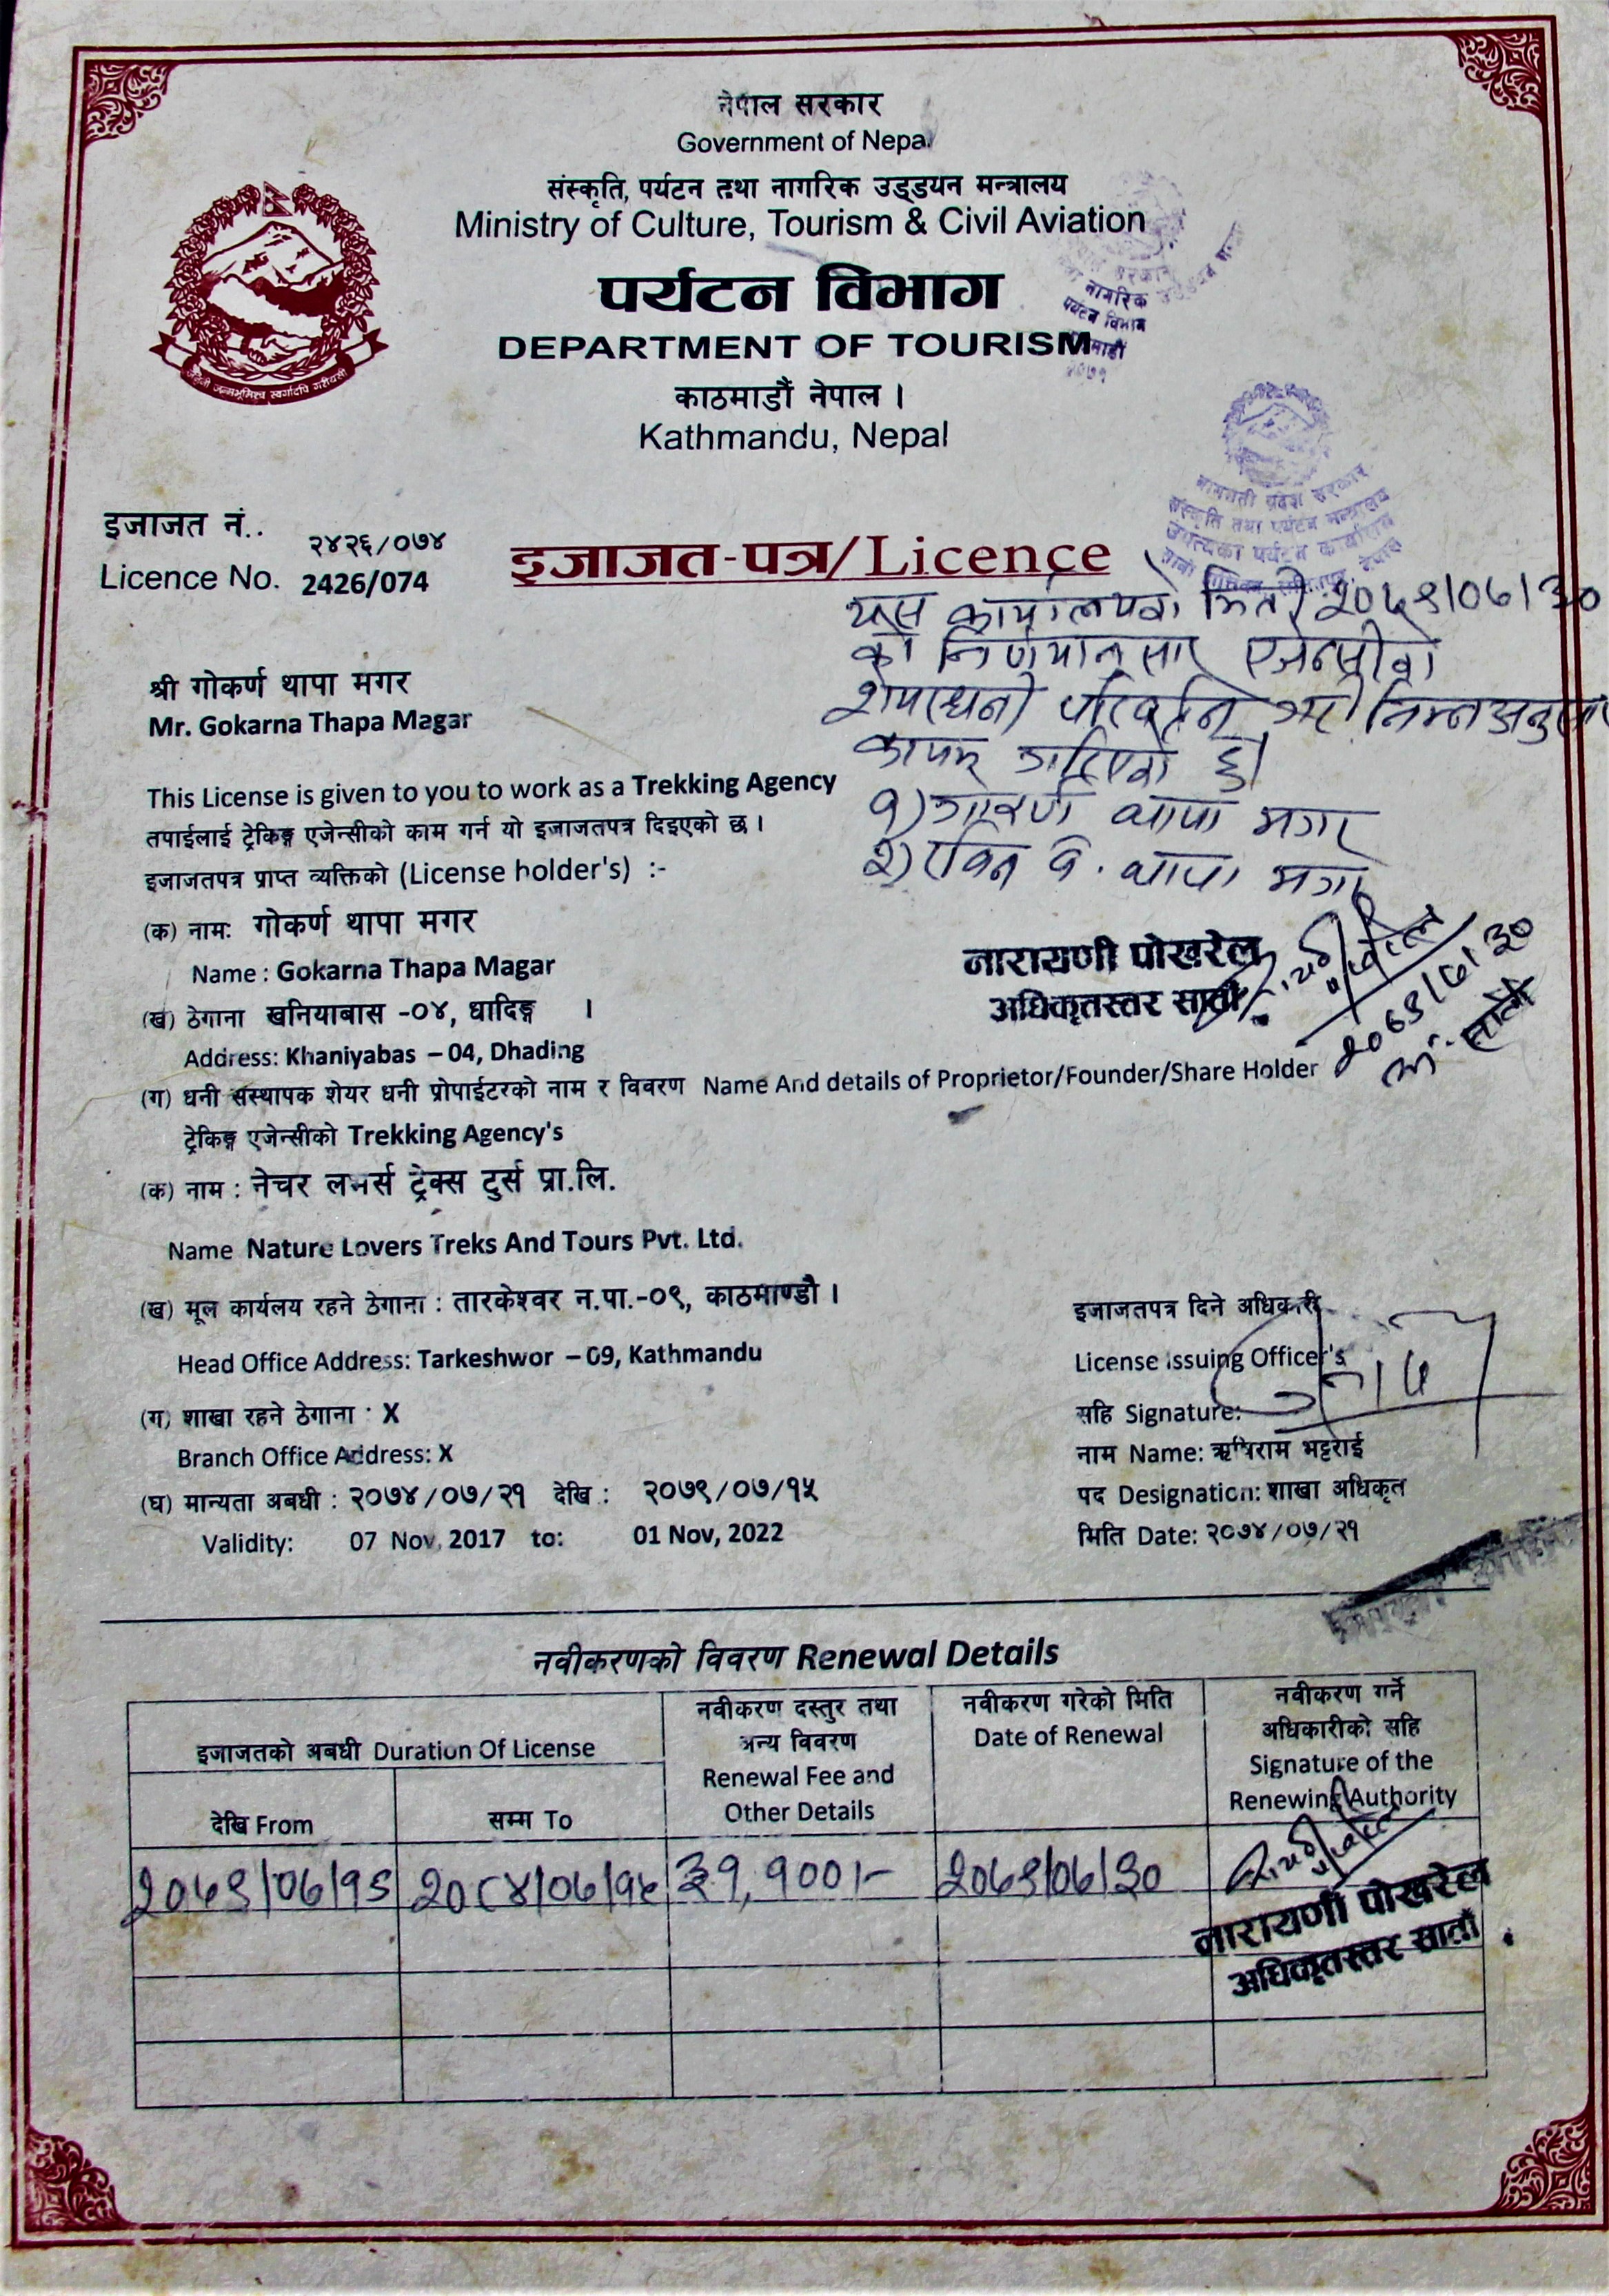 नेपाल सरकार
Government of Nepal
संस्कृति, पर्यटन तथा नागरिक उड्डयन मन्त्रालय
Ministry of Culture, Tourism & Civil Aviation
पर्यटन विभाग
DEPARTMENT OF TOURISM
काठमाडौं नेपाल ।
Kathmandu, Nepal
जननी जन्मभूमिश्च स्वर्गादपि गरीयसी
नागरिक
पर्यटन विभाग
बागमती प्रदेश सरकार
संस्कृति तथा पर्यटन मन्त्रालय
पर्यटन कार्यालय
इजाजत नं.. २४२६/०७४
Licence No. 2426/074
इजाजत-पत्र/Licence
यस कार्यालयको मिति २०७९/०७/३०
को निर्णयानुसार एजेन्सीको
शेयरधनी परिवर्तन भई निम्नअनुसार
कायम गरिएको छ।
१) गोकर्ण थापा मगर
२) रविन बि. थापा मगर
श्री गोकर्ण थापा मगर
Mr. Gokarna Thapa Magar
This License is given to you to work as a Trekking Agency
तपाईलाई ट्रेकिङ्ग एजेन्सीको काम गर्न यो इजाजतपत्र दिइएको छ ।
इजाजतपत्र प्राप्त व्यक्तिको (License holder's) :-
(क) नाम: गोकर्ण थापा मगर
Name : Gokarna Thapa Magar
नारायणी पोखरेल
अधिकृतस्तर सातौं
२०७९/७/३०
(ख) ठेगाना खनियाबास -०४, धादिङ्ग ।
Address: Khaniyabas – 04, Dhading
(ग) धनी संस्थापक शेयर धनी प्रोपाईटरको नाम र विवरण Name And details of Proprietor/Founder/Share Holder
ट्रेकिङ्ग एजेन्सीको Trekking Agency's
(क) नाम : नेचर लभर्स ट्रेक्स टुर्स प्रा.लि.
Name Nature Lovers Treks And Tours Pvt. Ltd.
(ख) मूल कार्यलय रहने ठेगाना : तारकेश्वर न.पा.-०९, काठमाण्डौ ।
Head Office Address: Tarkeshwor – 09, Kathmandu
(ग) शाखा रहने ठेगाना : X
Branch Office Address: X
(घ) मान्यता अबधी : २०७४/०७/२१ देखि : २०७९/०७/१५
Validity: 07 Nov, 2017 to: 01 Nov, 2022
इजाजतपत्र दिने अधिकारी
License issuing Officer's
सहि Signature:
नाम Name: ऋषिराम भट्टराई
पद Designation: शाखा अधिकृत
मिति Date: २०७४/०७/२१
नवीकरणको विवरण Renewal Details
इजाजतको अबधी Duration Of License
देखि From
सम्म To
नवीकरण दस्तुर तथा
अन्य विवरण
Renewal Fee and
Other Details
नवीकरण गरेको मिति
Date of Renewal
नवीकरण गर्ने
अधिकारीको सहि
Signature of the
Renewing Authority
२०७९/०७/१६ २०८४/०७/१५ ३१,१००।- २०७९/०७/३०
नारायणी पोखरेल
अधिकृतस्तर सातौं